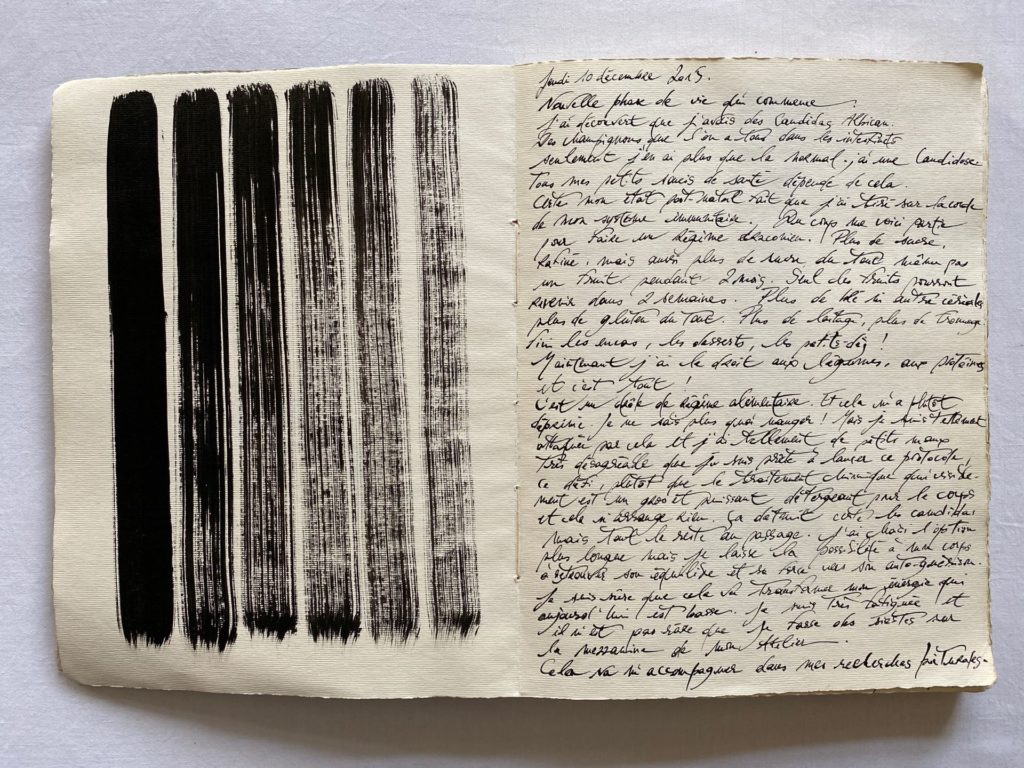 Jeudi 10 décembre 2015.
Nouvelle phase de vie qui commence.
J'ai découvert que j'avais des Candidas Albican.
Des champignons que l'on a tous dans les intestins
seulement j'en ai plus que la normal. j'ai une Candidose.
Tous mes petits soucis de santé dépende de cela.
Certes mon état post-natal fait que j'ai tiré sur la corde
de mon système immunitaire. Du coup me voici partie
pour faire un Régime draconien. Plus de sucre,
Rafiné, mais aussi plus de sucre du tout même pas
un fruit pendant 2 mois. Seul des fruits pourront
revenir dans 2 semaines. Plus de blé ni autre céréales
plus de gluten du tout. Plus de laitage, plus de fromage.
Fini les encas, les desserts, les petits-dej !
Maintenant j'ai le droit aux légumes, aux protéines
et c'est tout !
C'est un drôle de régime alimentaire. Et cela m'a plutôt
déprimé. Je ne sais plus quoi manger ! Mais je suis tellement
attaquée par cela et j'ai tellement de petits maux
très désagréable que je suis prête à lancer ce protocole,
ce défi, plutôt que le traitement chimique qui visible-
ment est un gros et puissant détergeant pour le corps
et cela n'arrange rien. Ça détruit certes les candidas
mais tout le reste au passage. J'ai choisi l'option
plus longue mais je laisse la possibilité à mon corps
à retrouver son équilibre et sa vers son auto-guérison.
Je suis sûre que cela va transformer mon énergie qui
aujourd'hui est basse. Je suis très fatiguée et
il n'est pas rare que je fasse des siestes sur
la mezzanine de mon Atelier.
Cela va m'accompagner dans mes recherches picturales.